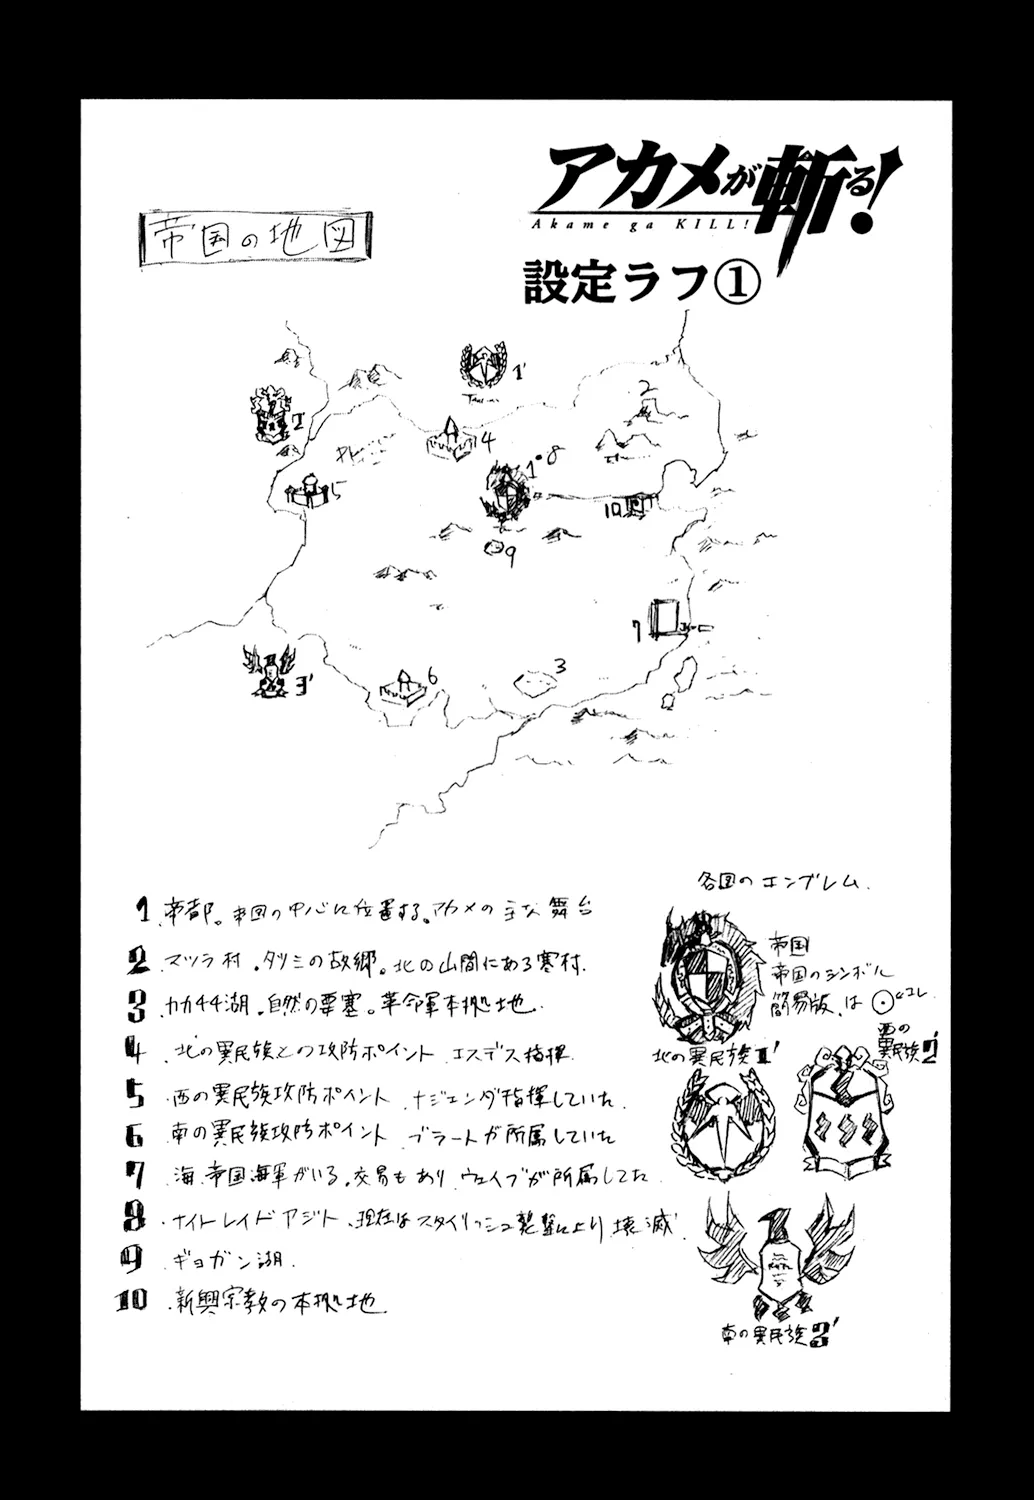 アカメが斬る!
Akame ga KILL!
設定ラフ①
帝国の地図
1'
2'
2
4
1 8
5
10
9
7
3
6
3'
1 帝都。帝国の中心に位置する。アカメの主な舞台
2 マツラ村。タツミの故郷。北の山間にある寒村.
3 カカ44湖.自然の要塞。革命軍本拠地.
4 北の異民族との攻防ポイント エスデス指揮.
5 西の異民族攻防ポイント ナジェンダ指揮していた.
6 南の異民族攻防ポイント ブラートが所属していた
7 海.帝国海軍がいる。交易もあり ウェイブが所属してた
8 ナイトレイドアジト、現在はスタイリッシュ襲撃により壊滅
9 ギョガン湖.
10 新興宗教の本拠地
各国のエンブレム.
帝国
帝国のシンボル
簡易版.は
コレ
北の異民族1'
西の
異民族2'
南の異民族3'